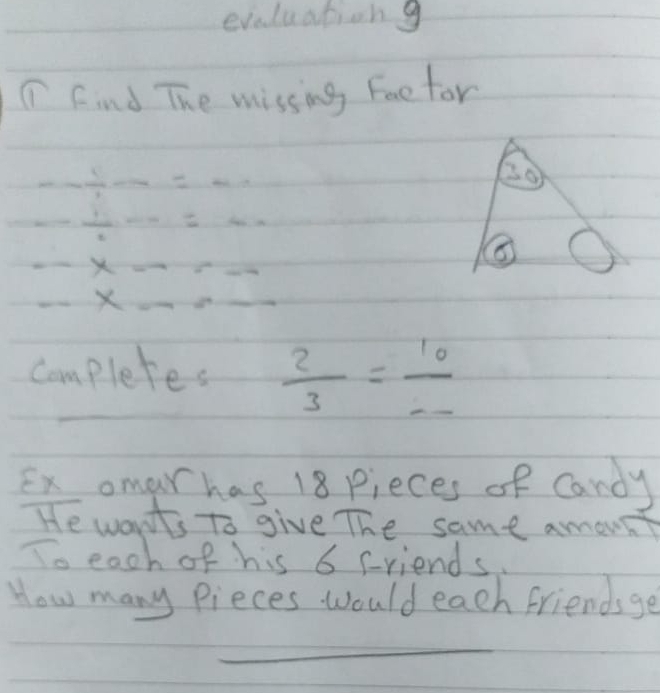 evaluation 9
① Find The missing Factor
30
-- ÷ -- = --
-- ÷ -- = --
6
-- × -- = --
-- × -- = --
Completes 2/3 = 10/--
Ex omar has 18 Pieces of Candy
He wants To give The same amount
To each of his 6 friends.
How many Pieces would each friends ge